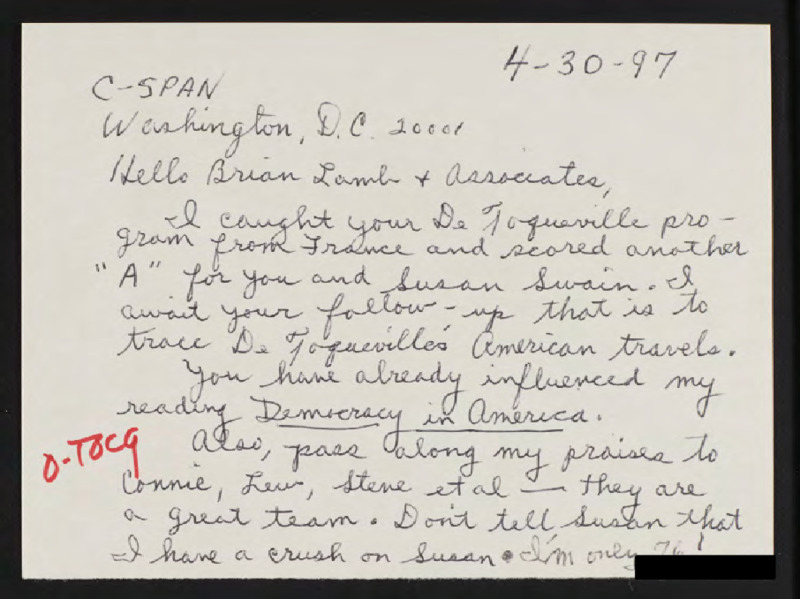 4-30-97
C-SPAN
Washington, D.C. 20001
Hello Brian Lamb & Associates,
I caught your De Toqueville pro-
gram from France and scored another
"A" for you and Susan Swain. I
await your follow-up that is to
trace De Toqueville's American travels.
You have already influenced my
reading Democracy in America.
Also, pass along my praises to
O-TOCQ
Connie, Lew, Steve et al — they are
a great team. Don't tell Susan that
I have a crush on Susan. I'm only 76!